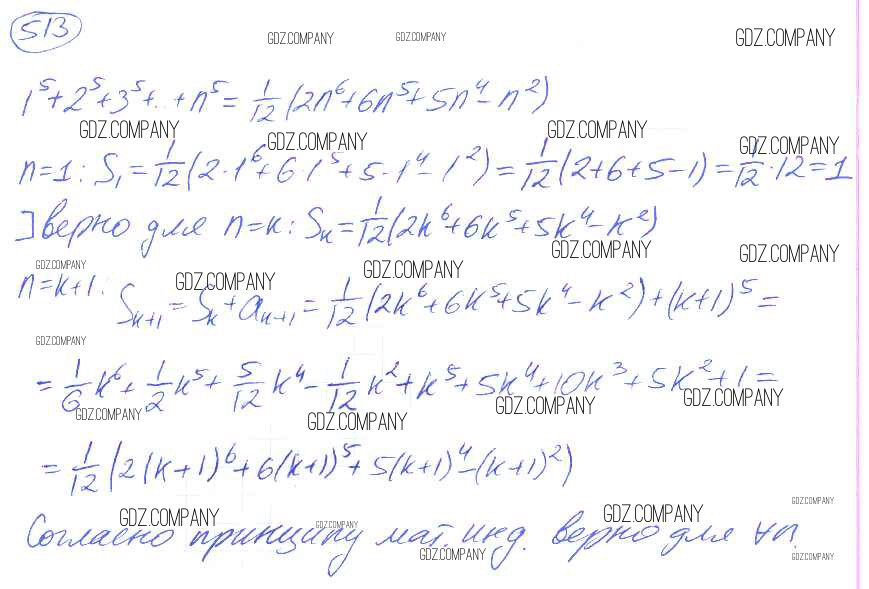 513
GDZ.COMPANY GDZ.COMPANY GDZ.COMPANY
1⁵+2⁵+3⁵+..+n⁵ = 1/12 (2n⁶+6n⁵+5n⁴-n²)
GDZ.COMPANY GDZ.COMPANY GDZ.COMPANY GDZ.COMPANY
n=1: S₁ = 1/12 (2·1⁶+6·1⁵+5·1⁴-1²) = 1/12 (2+6+5-1) = 1/12 ·12=1
] верно для n=k: Sₖ = 1/12 (2k⁶+6k⁵+5k⁴-k²)
GDZ.COMPANY GDZ.COMPANY GDZ.COMPANY GDZ.COMPANY GDZ.COMPANY
n=k+1: Sₖ₊₁ = Sₖ+aₖ₊₁ = 1/12 (2k⁶+6k⁵+5k⁴-k²)+(k+1)⁵=
GDZ.COMPANY
= 1/6 k⁶+ 1/2 k⁵+ 5/12 k⁴- 1/12 k²+k⁵+5k⁴+10k³+5k²+1=
GDZ.COMPANY GDZ.COMPANY GDZ.COMPANY GDZ.COMPANY
= 1/12 (2(k+1)⁶+6(k+1)⁵+5(k+1)⁴-(k+1)²)
GDZ.COMPANY GDZ.COMPANY GDZ.COMPANY GDZ.COMPANY
Согласно принципу мат. инд. верно для ∀n.
GDZ.COMPANY GDZ.COMPANY